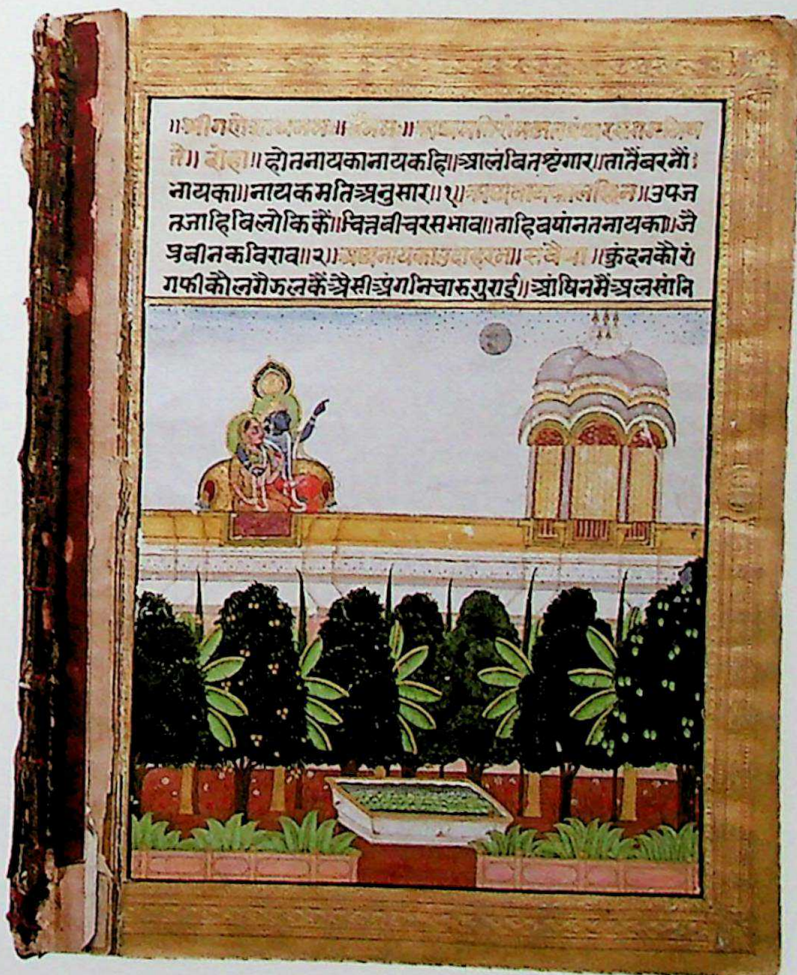 ॥श्रीगणेशायनमः॥
ते॥दोहा॥होतनायकानायकहि॥आलंबितशृंगार॥तातैंबरनौं
नायका॥नायकमतिअनुसार॥१॥ ॥उपज
तजाहिविलोकिकैं॥चित्तबीचरसभाव॥ताहिबषांनतनायका॥जे
प्रबीनकविराव॥२॥अथनायकाउदाहरन॥सवैया॥कुंदनकौरं
गफीकौलगैझलकैंअैसीअंगनिचारुगुराई॥आंषिनमैंअलसांनि